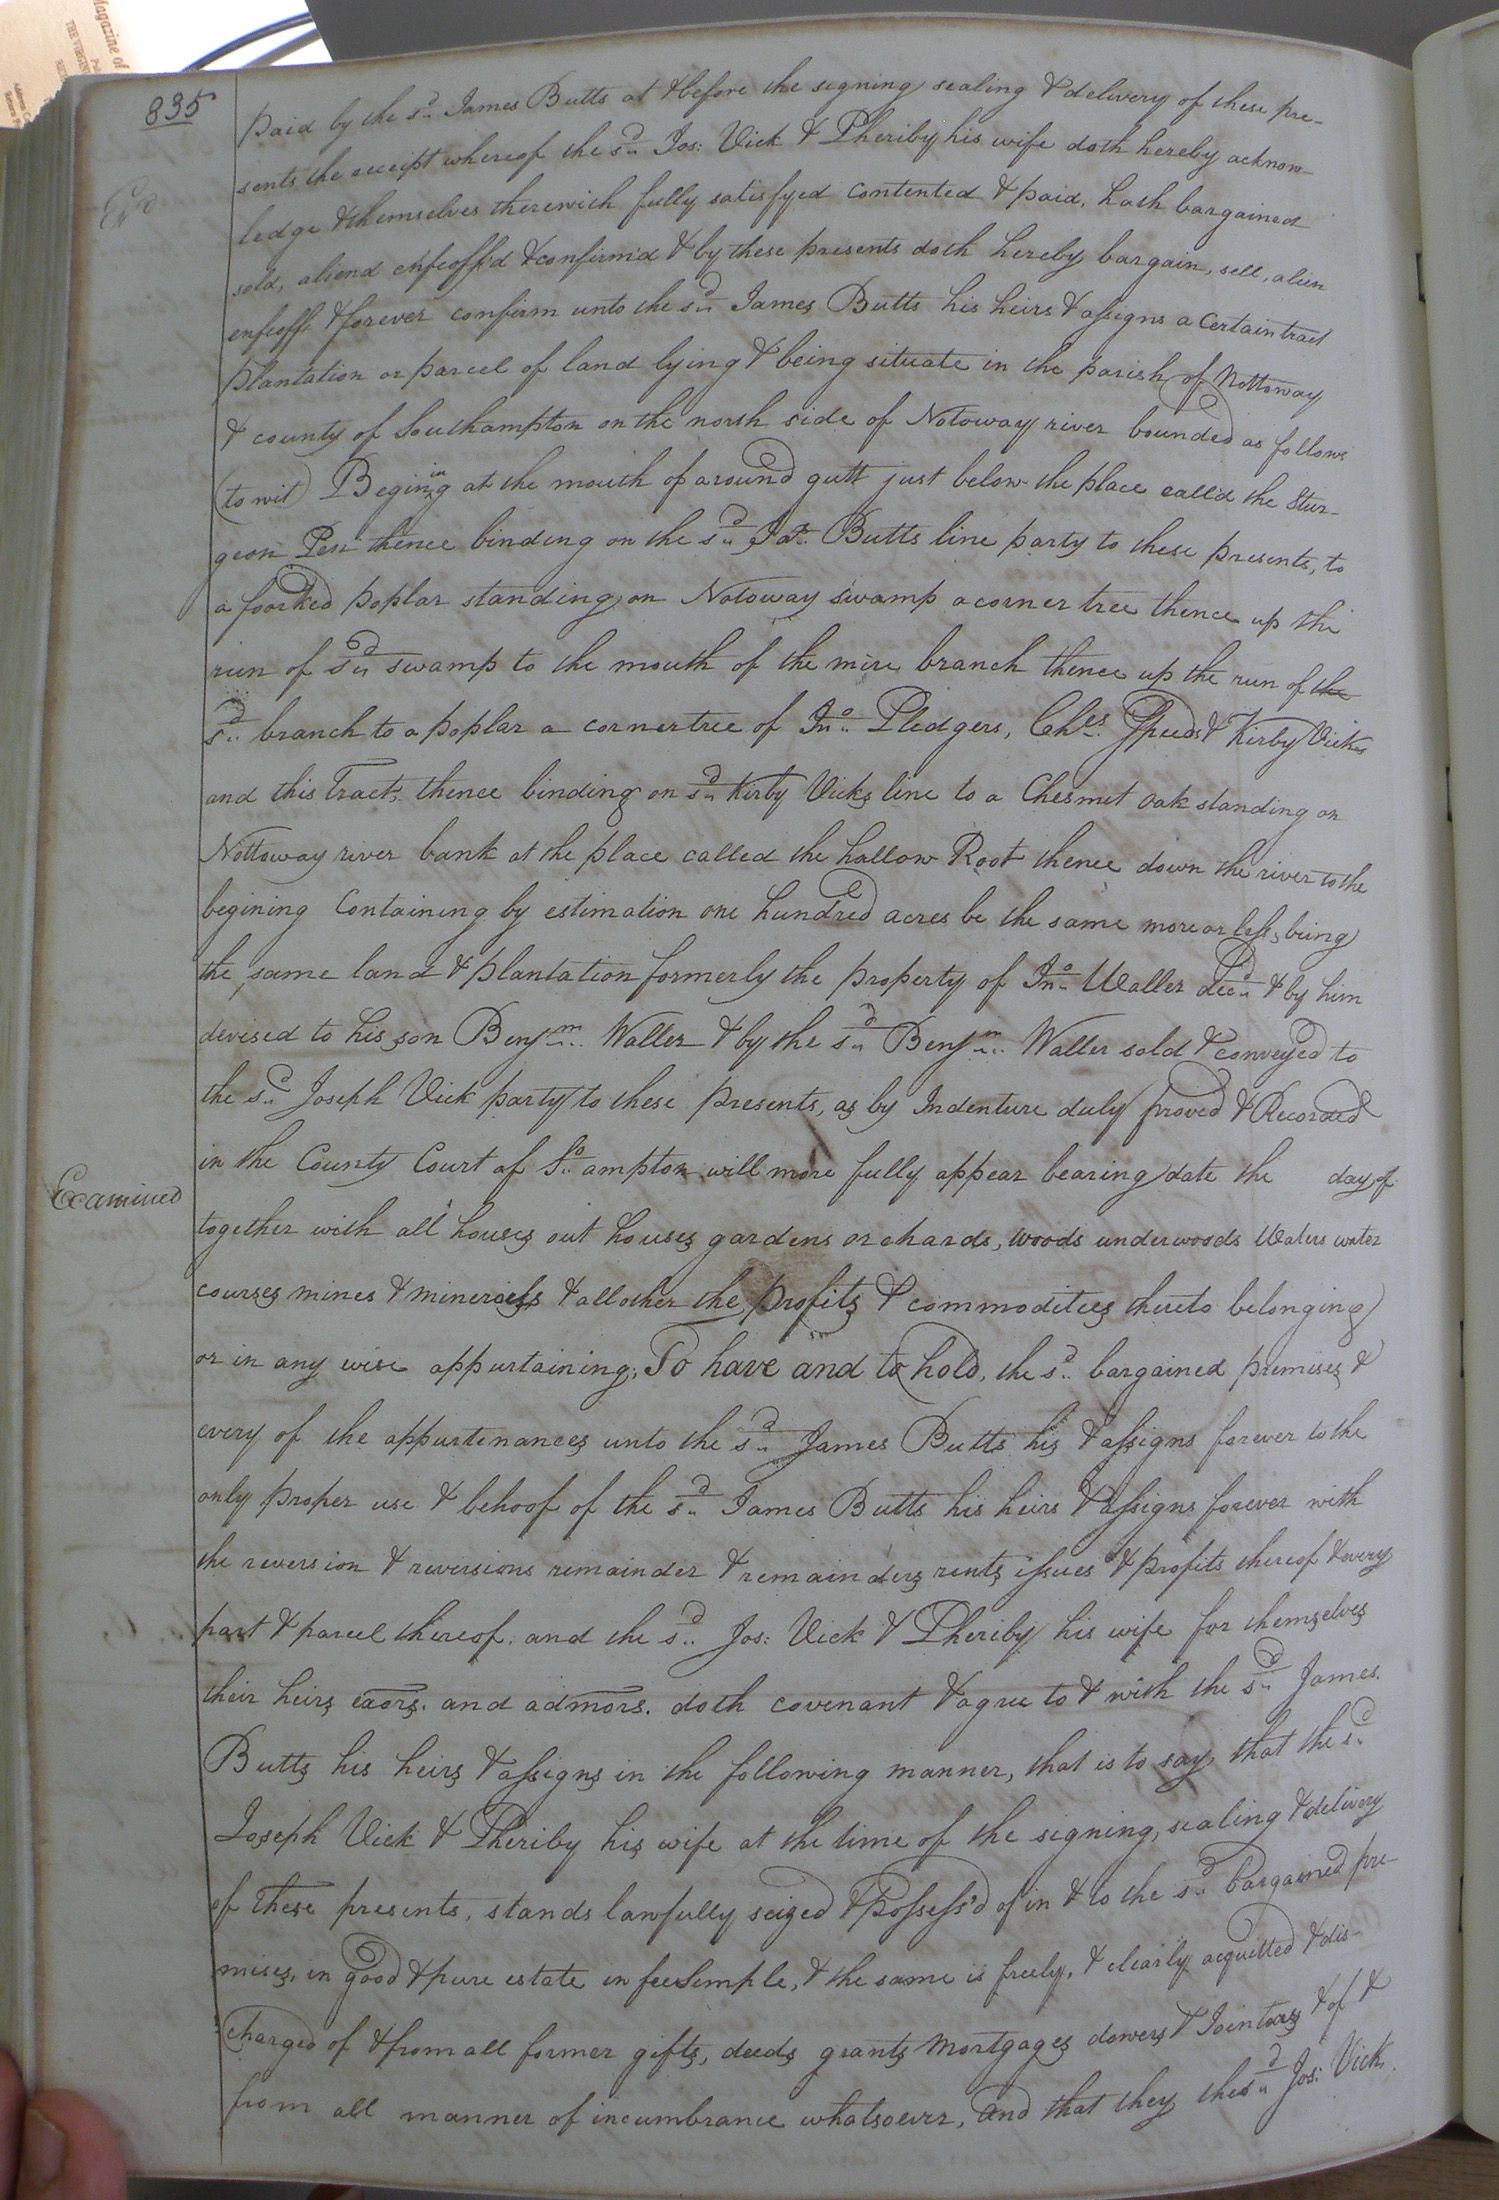 Magazine of
THE VIRGIN
835
Ex'd
paid by the sd. James Butts at & before the signing sealing & delivery of these pre-
sents the receipt whereof the sd. Jos: Vick & Pheriby his wife doth hereby acknow-
ledge & themselves therewith fully satisfyed contented & paid, hath bargained
sold, aliend enfeoff'd & confirm'd & by these presents doth hereby bargain, sell, alien
enfeoff & forever confirm unto the sd. James Butts his heirs & assigns a certain tract
plantation or parcel of land lying & being situate in the parish of Nottoway
& county of Southampton on the north side of Notoway river bounded as follows
(to wit) Begining at the mouth of a round gutt just below the place call'd the Stur-
geon Pen thence binding on the sd. Jas. Butts line party to these presents, to
a foorked poplar standing on Notoway swamp a corner tree thence up the
run of sd. swamp to the mouth of the mire branch thence up the run of the
sd. branch to a poplar a corner tree of Jno. Pledgers, Chs. Speeds & Kirby Vicks
and this Tract, thence binding on sd. Kirby Vicks line to a Chesnut oak standing on
Nottoway river bank at the place called the hallow Root thence down the river to the
begining Containing by estimation one hundred acres be the same more or less, being
the same land & plantation formerly the property of Jno. Waller decd. & by him
devised to his son Benjm. Waller & by the sd. Benjm. Waller sold & conveyed to
the sd. Joseph Vick party to these presents, as by Indenture duly proved & Recorded
in the County Court of So.ampton will more fully appear bearing date the day of
Examined
together with all houses out houses gardens orchards, woods underwoods Waters water
courses mines & minerals & all other the profits & commodities thereto belonging
or in any wise appurtaining; To have and to hold, the sd. bargained premises &
every of the appurtenances unto the sd. James Butts his & assigns forever to the
only proper use & behoof of the sd. James Butts his heirs & assigns forever with
the reversion & reversions remainder & remainders rents issues & profits thereof & every
part & parcel thereof. and the sd. Jos: Vick & Pheriby his wife for themselves
their heirs exors. and admors. doth covenant & agree to & with the sd. James
Butts his heirs & assigns in the following manner, that is to say, that the sd.
Joseph Vick & Pheriby his wife at the time of the signing, sealing & delivery
of these presents, stands lawfully seized & possess'd of in & to the sd. bargained pre-
mises, in good & pure estate in fee semple, & the same is freely, & clearly acquitted & dis-
charged of & from all former gifts, deeds grants mortgages dowers & Jointures & of &
from all manner of incumbrance whatsoever, and that they the sd. Jos: Vick